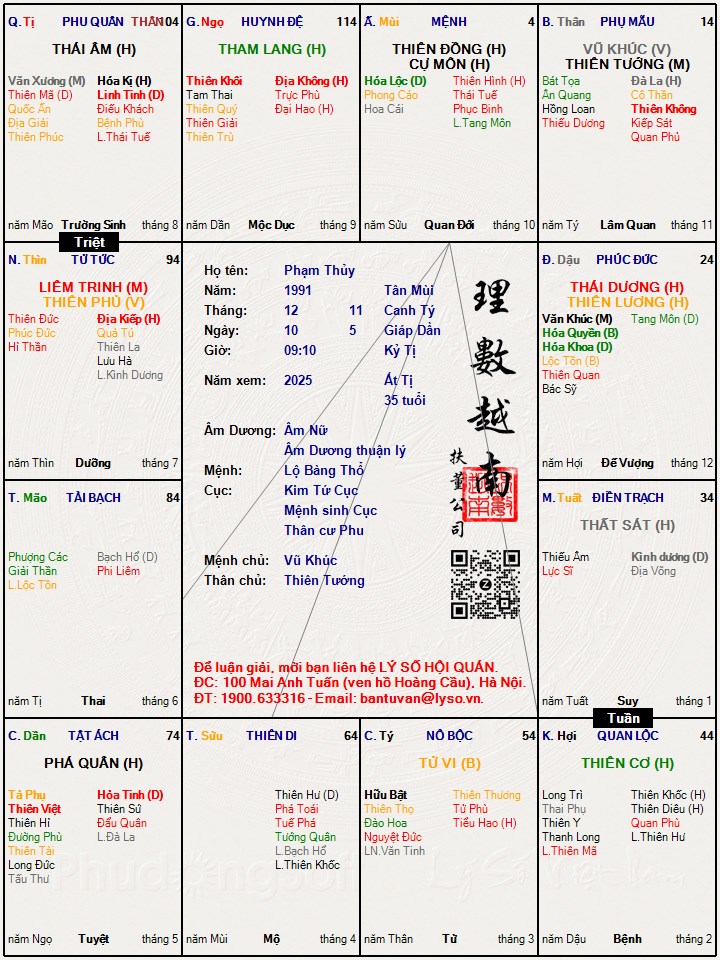 Q. Tị PHU QUÂN THÂN 104
THÁI ÂM (H)
Văn Xương (M) Hóa Kị (H)
Thiên Mã (D) Linh Tinh (D)
Quốc Ấn Điếu Khách
Địa Giải Bệnh Phù
Thiên Phúc L.Thái Tuế
năm Mão Trường Sinh tháng 8
G. Ngọ HUYNH ĐỆ 114
THAM LANG (H)
Thiên Khôi Địa Không (H)
Tam Thai Trực Phù
Thiên Quý Đại Hao (H)
Thiên Giải
Thiên Trù
năm Dần Mộc Dục tháng 9
Ấ. Mùi MỆNH 4
THIÊN ĐỒNG (H)
CỰ MÔN (H)
Hóa Lộc (D) Thiên Hình (H)
Phong Cáo Thái Tuế
Hoa Cái Phục Binh
L.Tang Môn
năm Sửu Quan Đới tháng 10
B. Thân PHỤ MẪU 14
VŨ KHÚC (V)
THIÊN TƯỚNG (M)
Bát Tọa Đà La (H)
Ân Quang Cô Thần
Hồng Loan Thiên Không
Thiếu Dương Kiếp Sát
Quan Phủ
năm Tý Lâm Quan tháng 11
Triệt
N. Thìn TỬ TỨC 94
LIÊM TRINH (M)
THIÊN PHỦ (V)
Thiên Đức Địa Kiếp (H)
Phúc Đức Quả Tú
Hỉ Thần Thiên La
Lưu Hà
L.Kình Dương
năm Thìn Dưỡng tháng 7
Họ tên: Phạm Thủy
Năm: 1991 Tân Mùi
Tháng: 12 11 Canh Tý
Ngày: 10 5 Giáp Dần
Giờ: 09:10 Kỷ Tị
Năm xem: 2025 Ất Tị
35 tuổi
Âm Dương: Âm Nữ
Âm Dương thuận lý
Mệnh: Lộ Bàng Thổ
Cục: Kim Tứ Cục
Mệnh sinh Cục
Thân cư Phu
Mệnh chủ: Vũ Khúc
Thân chủ: Thiên Tướng
理數越南
扶董公司
Để luận giải, mời bạn liên hệ LÝ SỐ HỘI QUÁN.
ĐC: 100 Mai Anh Tuấn (ven hồ Hoàng Cầu), Hà Nội.
ĐT: 1900.633316 - Email: bantuvan@lyso.vn.
Đ. Dậu PHÚC ĐỨC 24
THÁI DƯƠNG (H)
THIÊN LƯƠNG (H)
Văn Khúc (M) Tang Môn (D)
Hóa Quyền (B)
Hóa Khoa (D)
Lộc Tồn (B)
Thiên Quan
Bác Sỹ
năm Hợi Đế Vượng tháng 12
T. Mão TÀI BẠCH 84
Phượng Các Bạch Hổ (D)
Giải Thần Phi Liêm
L.Lộc Tồn
năm Tị Thai tháng 6
M. Tuất ĐIỀN TRẠCH 34
THẤT SÁT (H)
Thiếu Âm Kình dương (D)
Lực Sĩ Địa Võng
năm Tuất Suy tháng 1
Tuần
C. Dần TẬT ÁCH 74
PHÁ QUÂN (H)
Tả Phụ Hỏa Tinh (D)
Thiên Việt Thiên Sứ
Thiên Hỉ Đẩu Quân
Đường Phù L.Đà La
Thiên Tài
Long Đức
Tấu Thư
năm Ngọ Tuyệt tháng 5
T. Sửu THIÊN DI 64
Thiên Hư (D)
Phá Toái
Tuế Phá
Tướng Quân
L.Bạch Hổ
L.Thiên Khốc
năm Mùi Mộ tháng 4
C. Tý NÔ BỘC 54
TỬ VI (B)
Hữu Bật Thiên Thương
Thiên Thọ Tử Phù
Đào Hoa Tiểu Hao (H)
Nguyệt Đức
LN.Văn Tinh
năm Thân Tử tháng 3
K. Hợi QUAN LỘC 44
THIÊN CƠ (H)
Long Trì Thiên Khốc (H)
Thai Phụ Thiên Diêu (H)
Thiên Y Quan Phù
Thanh Long L.Thiên Hư
L.Thiên Mã
năm Dậu Bệnh tháng 2